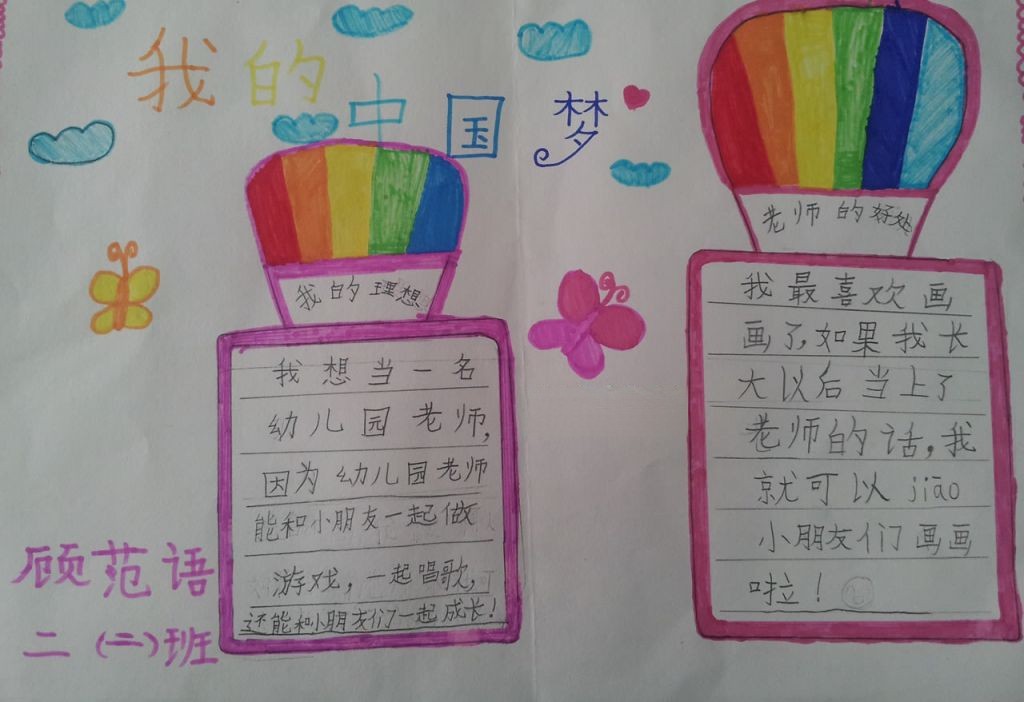 我的中国梦
我的理想
我想当一名
幼儿园老师,
因为幼儿园老师
能和小朋友一起做
游戏，一起唱歌,
还能和小朋友们一起成长!
老师的好处
我最喜欢画
画了,如果我长
大以后当上了
老师的话,我
就可以jiāo
小朋友们画画
啦!
顾范语
二(二)班